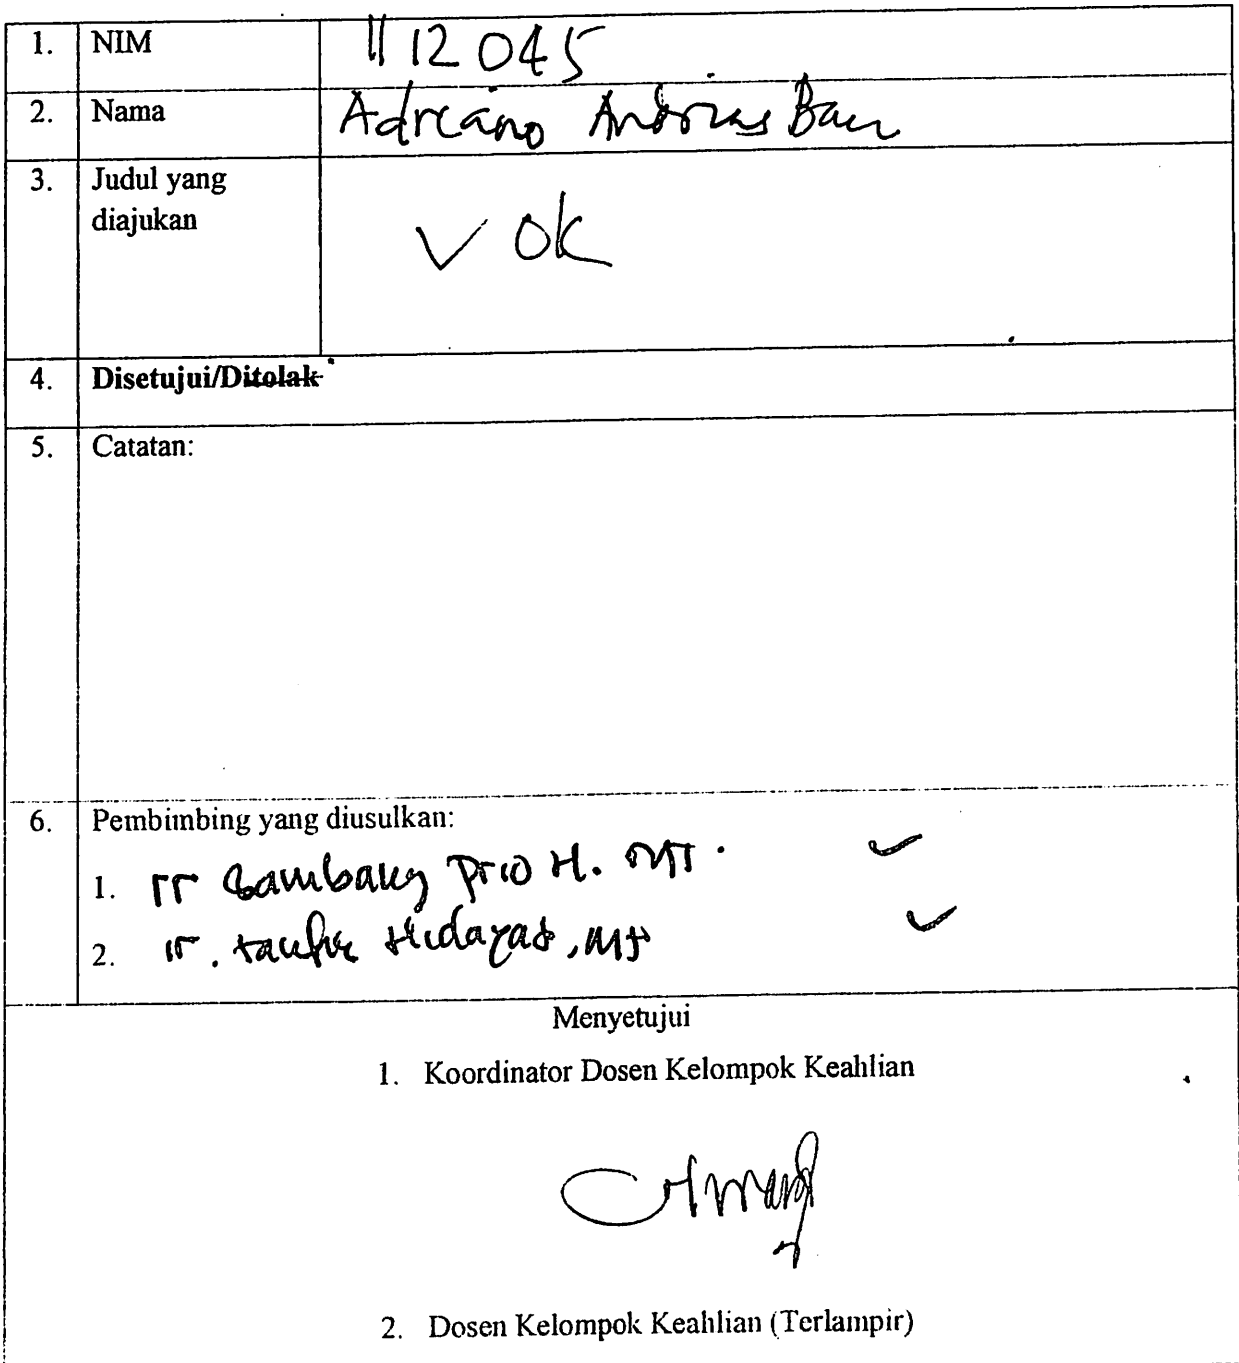 1. NIM 1112045
2. Nama Adreano Andrias Bau
3. Judul yang
diajukan
✓ ok
4. Disetujui/Ditolak
5. Catatan:
6. Pembimbing yang diusulkan:
1. Ir Bambang Prio H. MT. ✓
2. Ir. Taufik Hidayat, MT ✓
Menyetujui
1. Koordinator Dosen Kelompok Keahlian
2. Dosen Kelompok Keahlian (Terlampir)